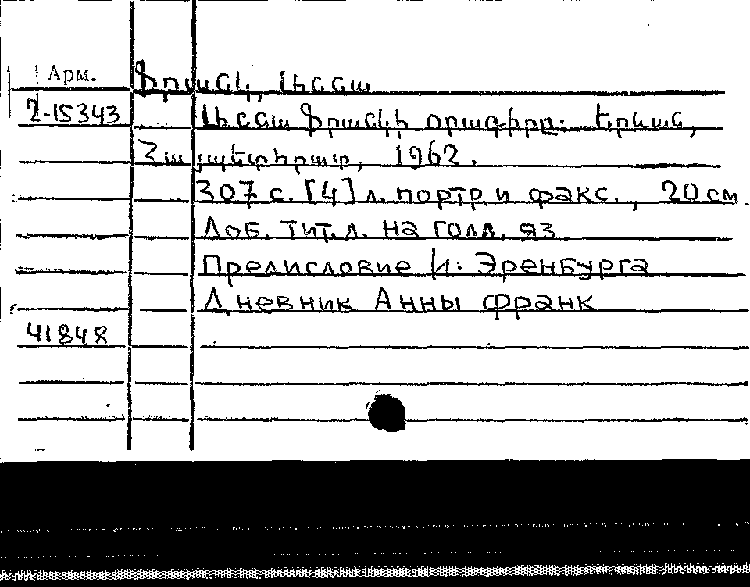 Арм.
Ֆրանկ, Աննա
2-15343
Աննա Ֆրանկի օրագիրը. Երևան,
Հայպետհրատ, 1962.
307 с. [4] л. портр и факс., 20 см
Доб. тит. л. на голл. яз
Предисловие И. Эренбурга
Дневник Анны Франк
41848